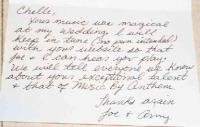 Chelle,
Your music was magical
at my wedding. I will
keep "in tune" (no pun intended)
with your website so that
Joe & I can hear you play.
We will tell everyone we know
about your exceptional talent
& that of Music by Anthem.
Thanks again
Joe & Amy